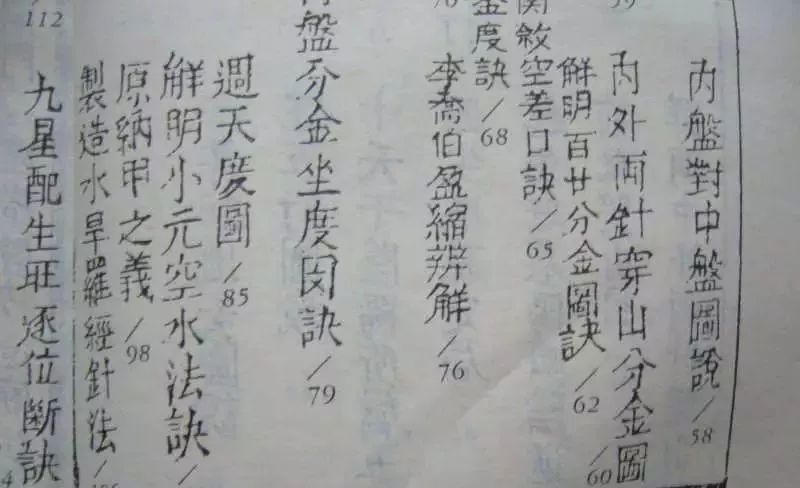 內盤對中盤圖說/58
內外両針穿山分金圖/60
解明百廿分金圖訣/62
関敘空差口訣/65
金度訣/68
李喬伯盈縮辨解/76
盤分金坐度図訣/79
週天度圖/85
解明小元空水法訣/
原納甲之義/98
製造水旱羅經針法/
112
九星配生旺逐位斷訣